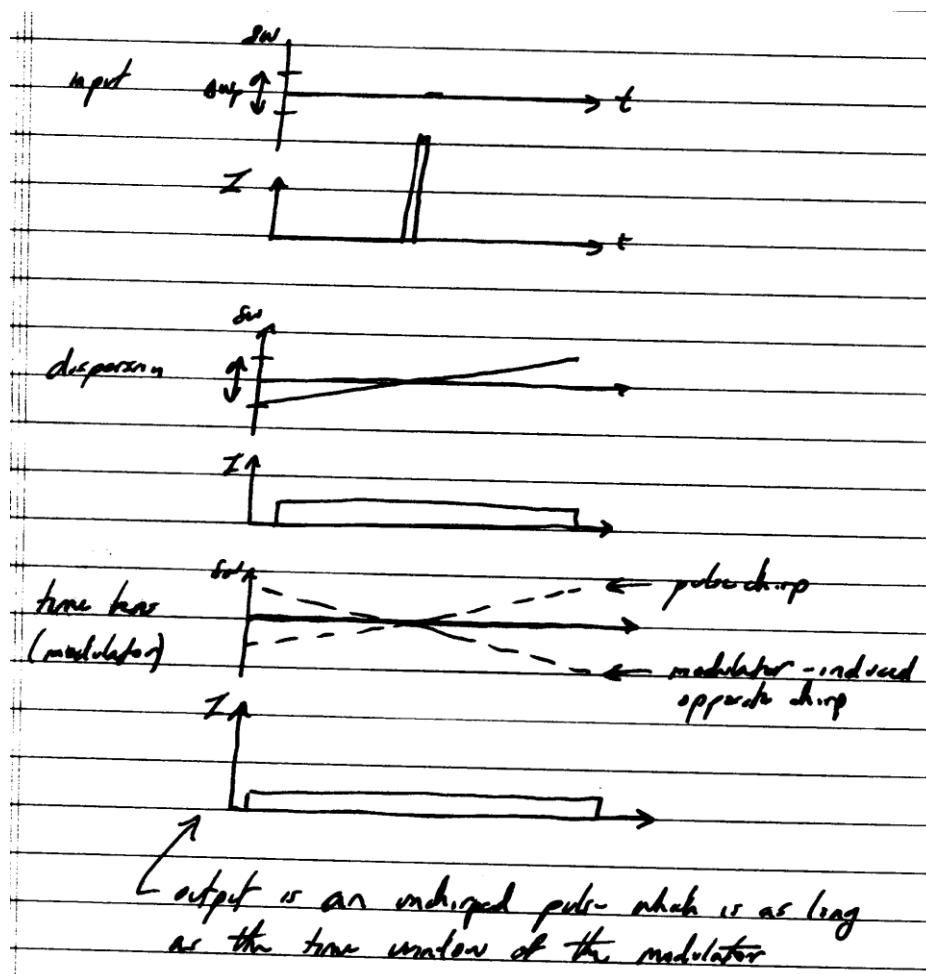 δω
input Δωp t
I
t
δω
dispersion
I
δω
time lens ← pulse chirp
(modulator) ← modulator-induced
opposite chirp
I
output is an unchirped pulse which is as long
as the time window of the modulator